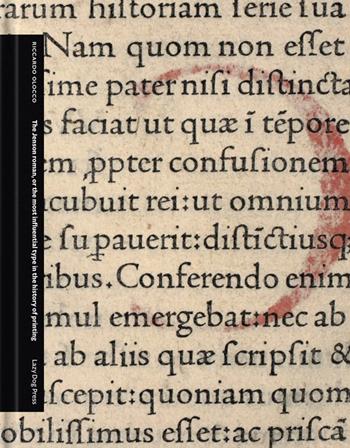 RICCARDO OLOCCO
The Jenson roman, or the most influential type in the history of printing
Lazy Dog Press
rarum hiſtoriam ſerie ſua
Nam quom non eſſet
ime pater niſi diſtincta
s faciat ut quæ ī tēpore
em ꝓpter confuſionem
cubuit rei:ut omnium
e ſuꝑauerit:diſtīctiusq;
ibus.Conferendo enim
mul emergebat:nec ab
ab aliis quæ ſcripſit &
ſcepit:quoniam quom
obiliſſimus eſſet:ac priſcā